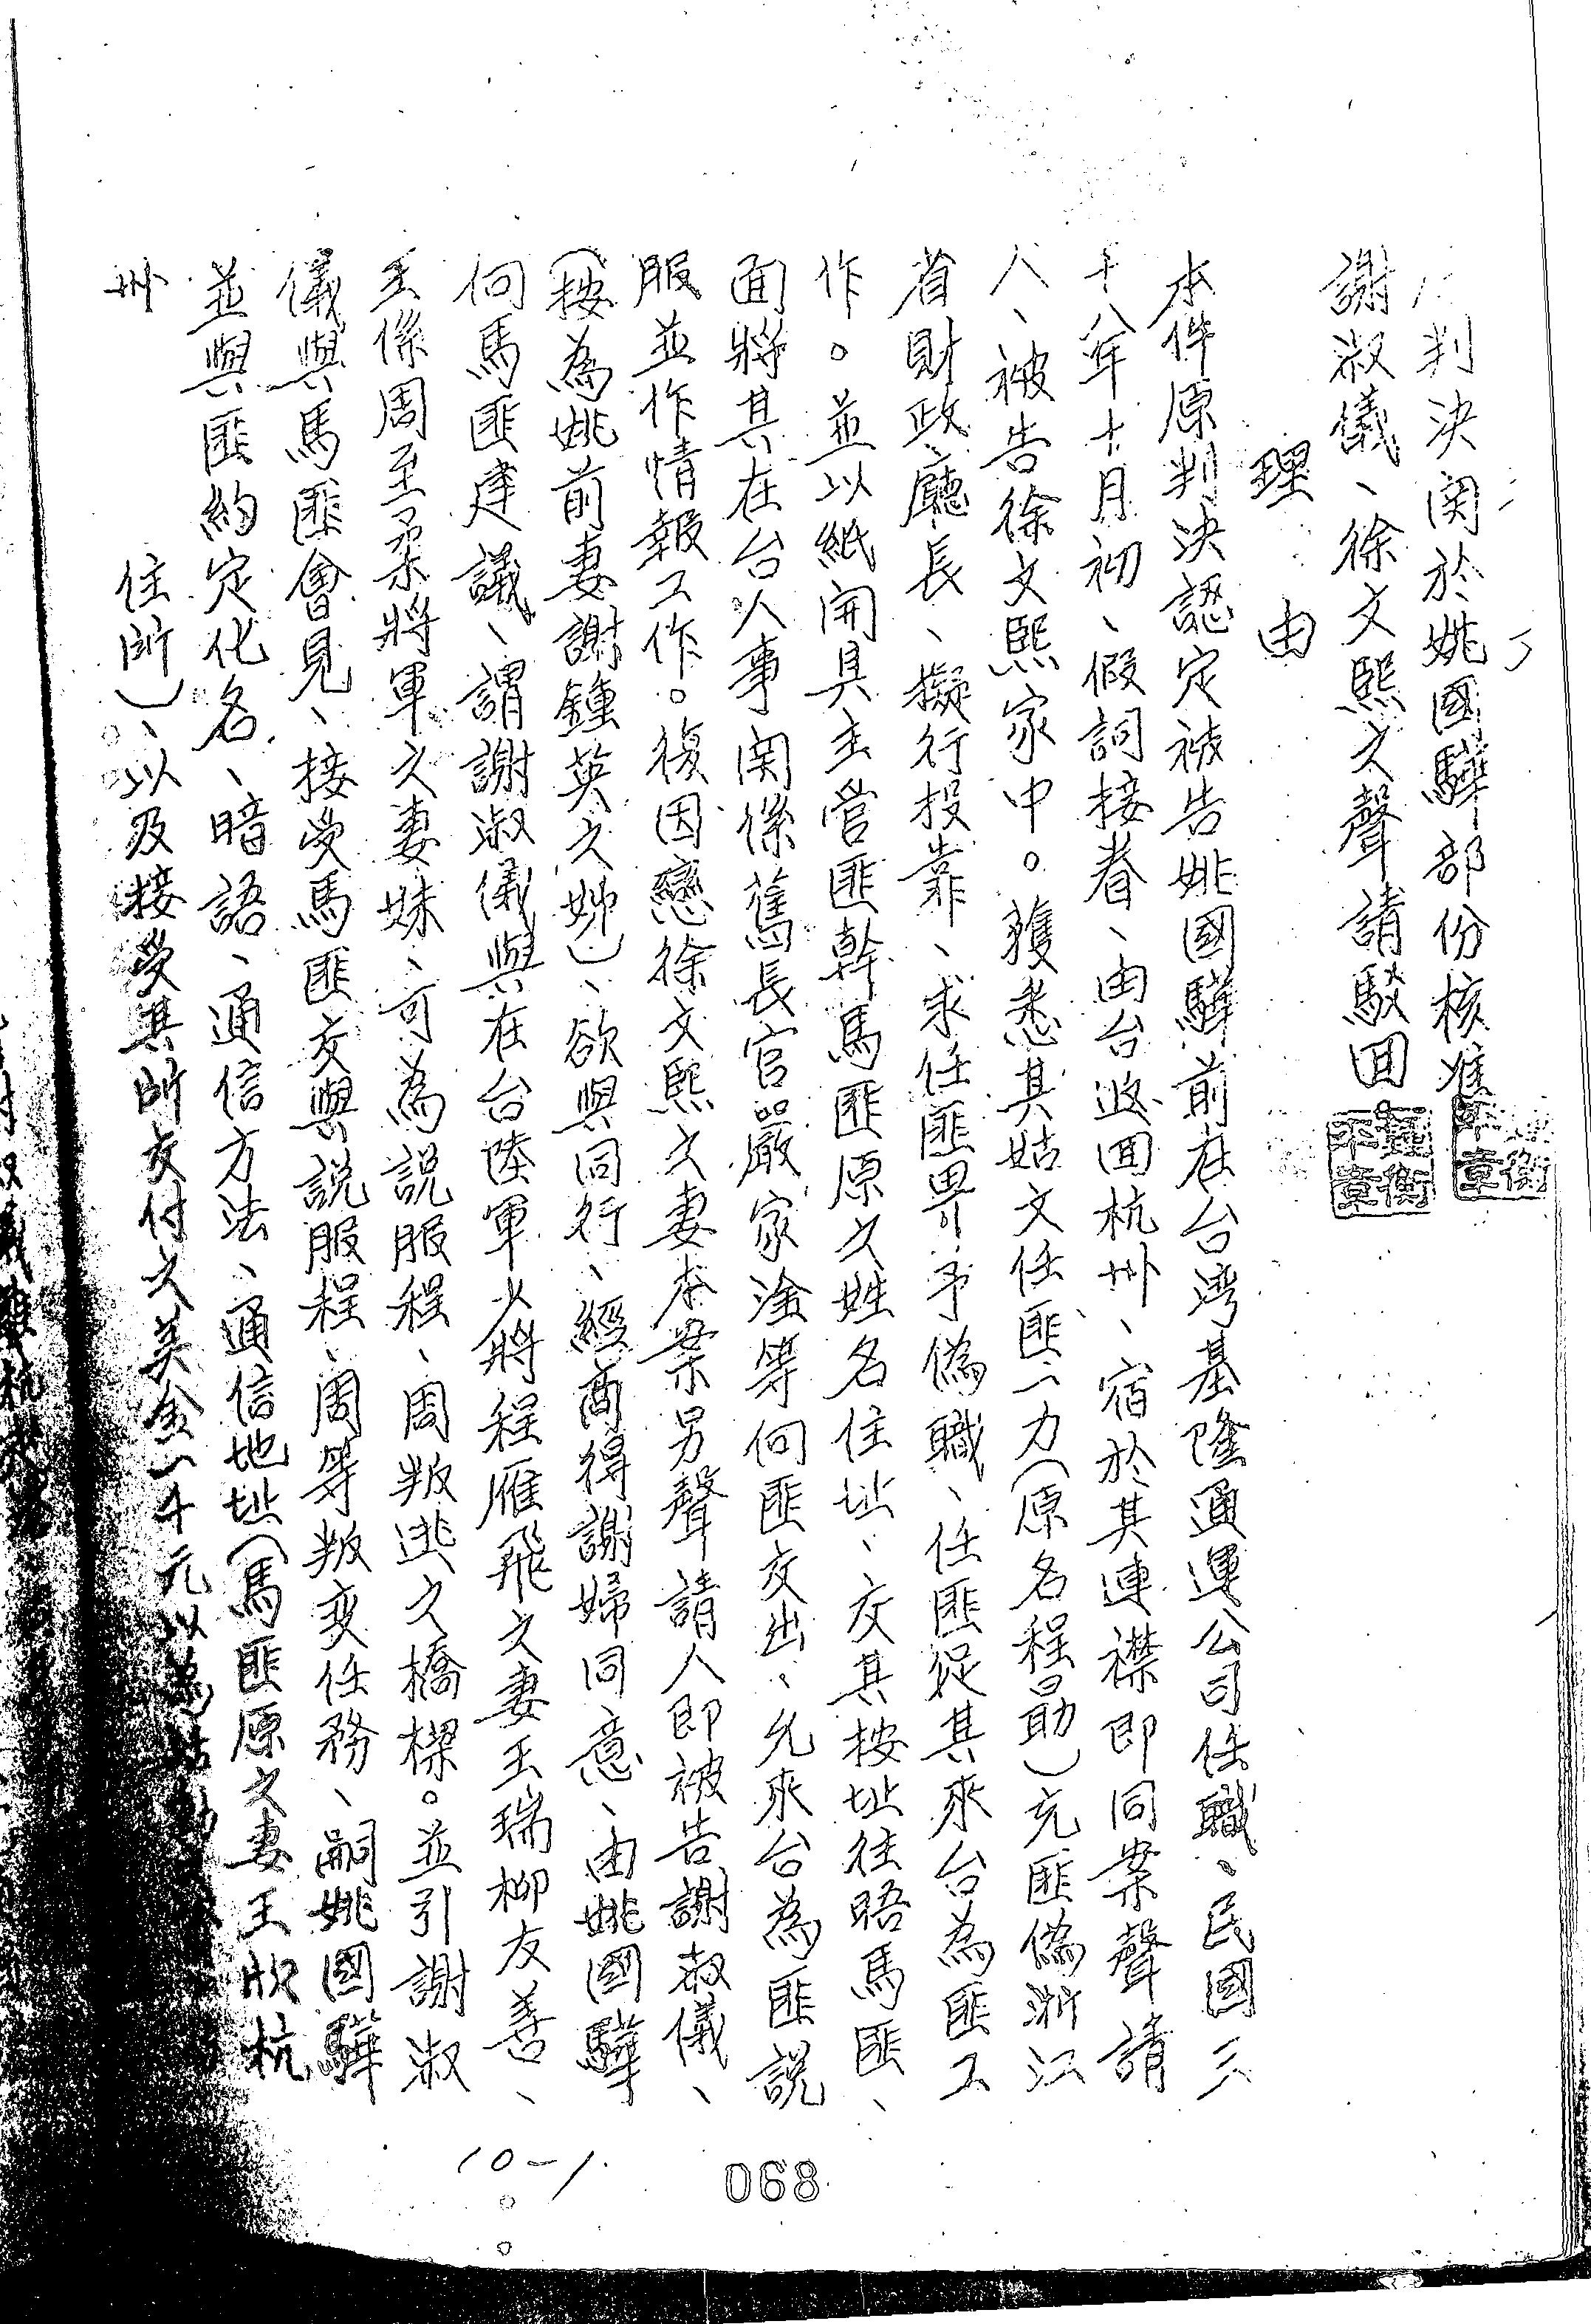 判決関於姚國驊部份核准
謝淑儀、徐文熙之聲請駁回。
理由
本件原判決認定被告姚國驊前在台湾基隆通運公司任職、民國三
十八年十月初、假詞接眷、由台返回杭州、宿於其連襟即同案聲請
人、被告徐文熙家中。獲悉其姑丈任匪二力(原名程勗)充匪偽浙江
省財政廳長、擬行投靠、求任匪畀予偽職、任匪促其來台為匪工
作。並以紙開具主管匪幹馬匪原之姓名住址、交其按址往晤馬匪、
面將其在台人事関係舊長官嚴家淦等向匪交出、允來台為匪説
服並作情報工作。復因戀徐文熙之妻本案另聲請人即被告謝淑儀、
(按為姚前妻謝鍾英之姊)、欲與同行、經商得謝婦同意、由姚國驊
向馬匪建議、謂謝淑儀與在台陸軍少將程雁飛之妻王瑞柳友善、
王係周至柔將軍之妻妹、可為説服程、周叛逃之橋樑。並引謝淑
儀與馬匪會見、接受馬匪交與説服程、周等叛变任務、嗣姚國驊
並與匪約定化名、暗語、通信方法、通信地址(馬匪原之妻王欣杭
州
住所)、以及接受其所交付之美金一千元以為
068
10-1